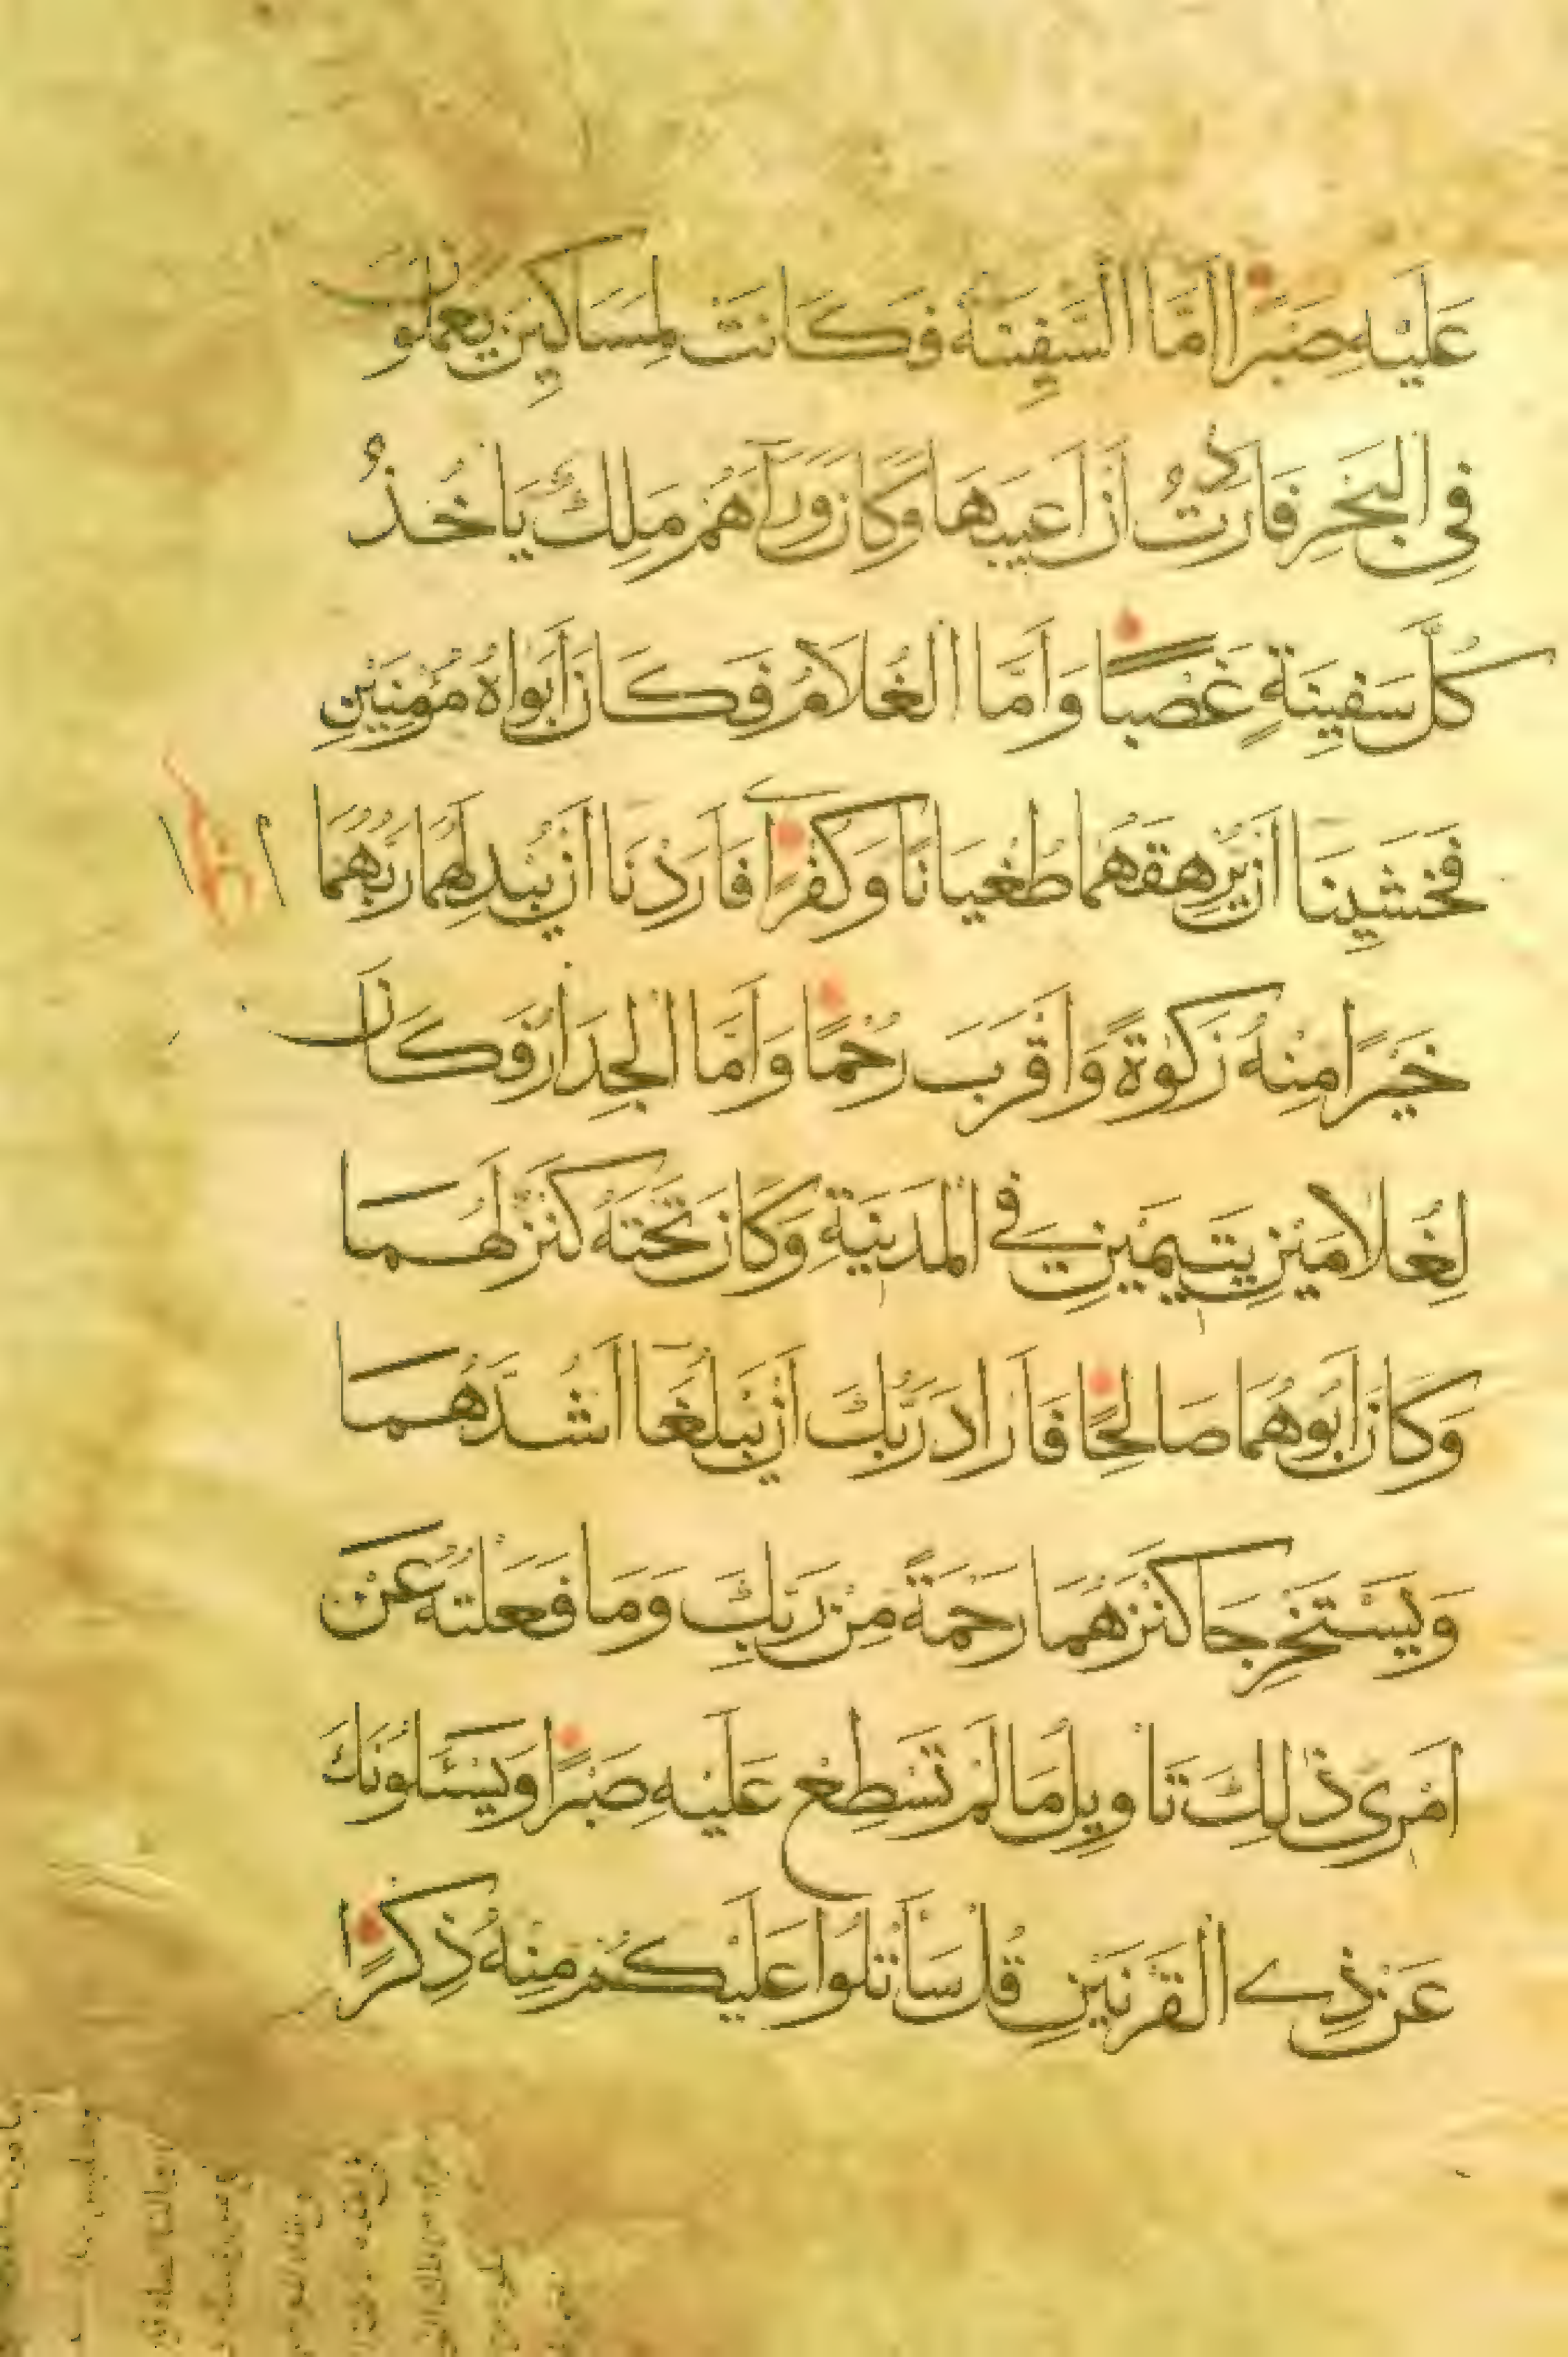 عَلَيْهِ صَبْرًا اَمَّا السَّفِينَةُ فَكَانَتْ لِمَسَاكِينَ يَعْمَلُونَ
فِي الْبَحْرِ فَاَرَدْتُ اَنْ اَعِيبَهَا وَكَانَ وَرَآءَهُمْ مَلِكٌ يَاْخُذُ
كُلَّ سَفِينَةٍ غَصْبًا وَاَمَّا الْغُلَامُ فَكَانَ اَبَوَاهُ مُؤْمِنَيْنِ
فَخَشِينَا اَنْ يُرْهِقَهُمَا طُغْيَانًا وَكُفْرًا فَاَرَدْنَا اَنْ يُبْدِلَهُمَا رَبُّهُمَا
خَيْرًا مِنْهُ زَكٰوةً وَاَقْرَبَ رُحْمًا وَاَمَّا الْجِدَارُ فَكَانَ
لِغُلَامَيْنِ يَتِيمَيْنِ فِي الْمَدِينَةِ وَكَانَ تَحْتَهُ كَنْزٌ لَهُمَا
وَكَانَ اَبُوهُمَا صَالِحًا فَاَرَادَ رَبُّكَ اَنْ يَبْلُغَا اَشُدَّهُمَا
وَيَسْتَخْرِجَا كَنْزَهُمَا رَحْمَةً مِنْ رَبِّكَ وَمَا فَعَلْتُهُ عَنْ
اَمْرِي ذٰلِكَ تَاْوِيلُ مَا لَمْ تَسْطِعْ عَلَيْهِ صَبْرًا وَيَسْـَٔلُونَكَ
عَنْ ذِي الْقَرْنَيْنِ قُلْ سَاَتْلُوا عَلَيْكُمْ مِنْهُ ذِكْرًا